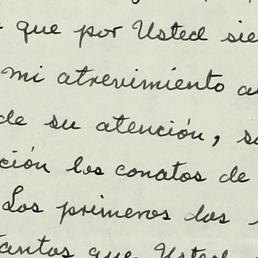 que por Usted sie
mi atrevimiento a
de su atención, s
ción los conatos de
Los primeros dos
tantos que Usted